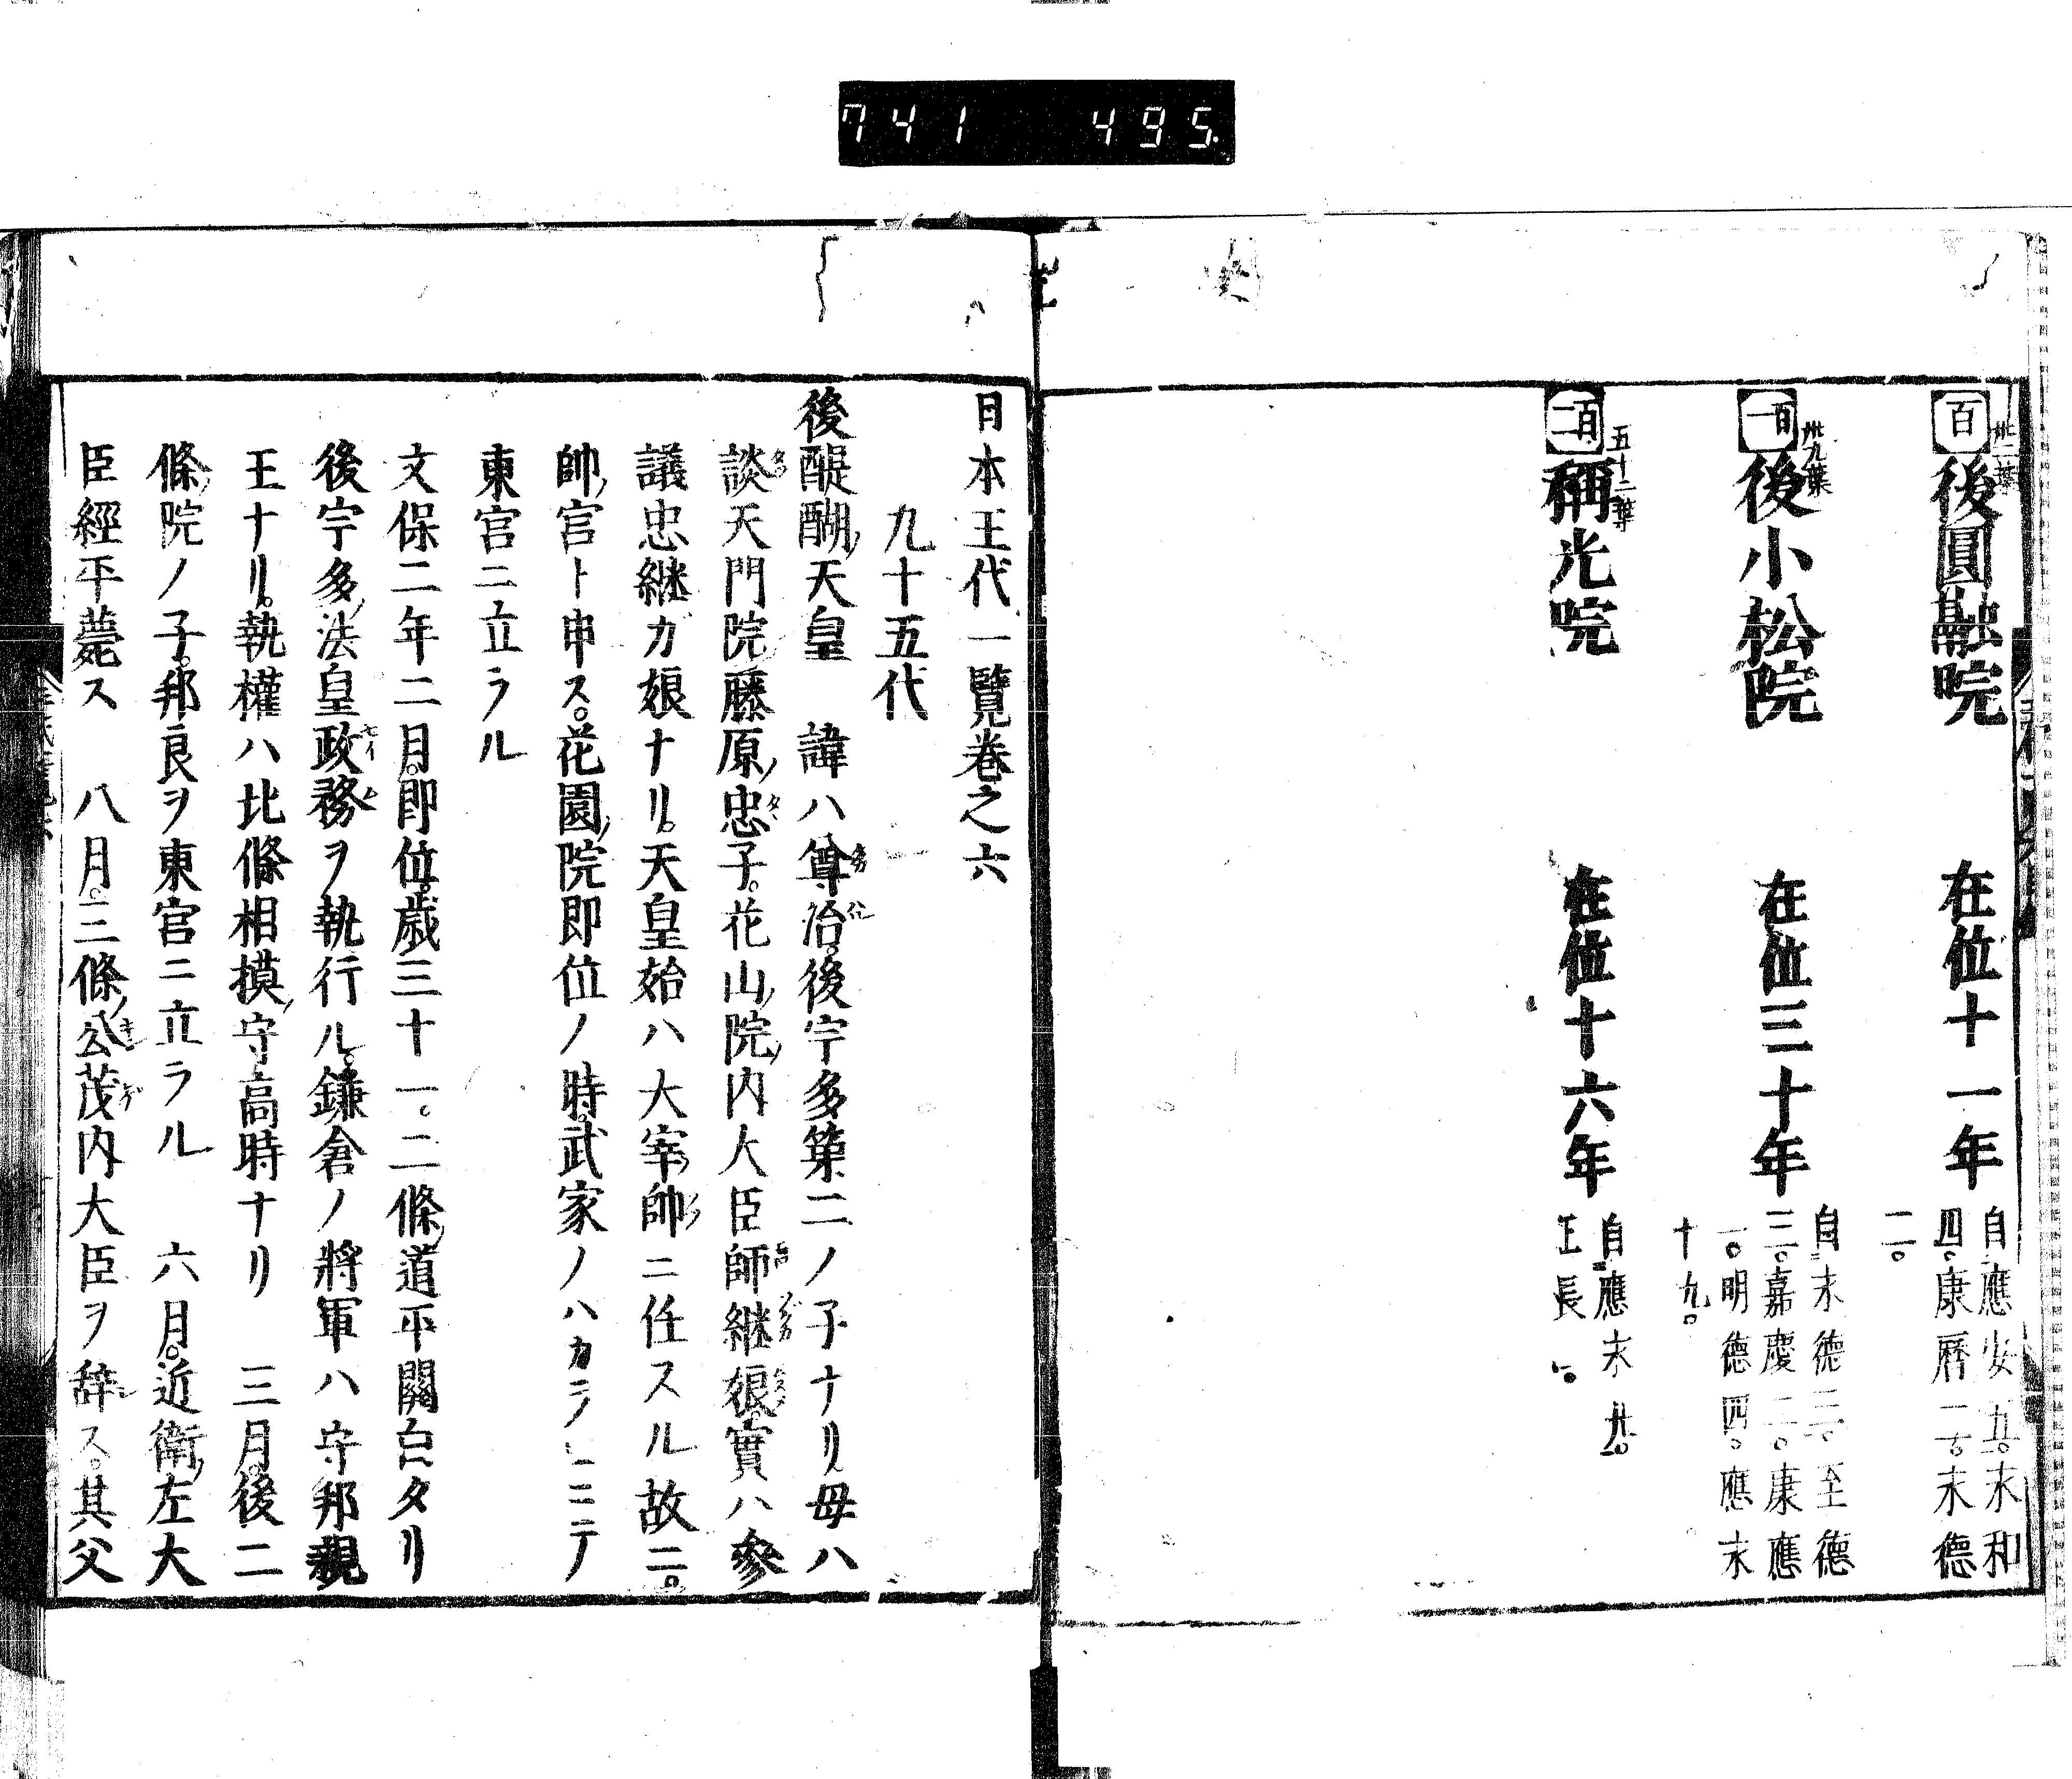 741 495
百 卅二葉
後圓融院 在位十一年 自應安五。永和
四。康曆二。永德
二。
百一 卅九葉
後小松院 在位三十年 自永德三。至德
三。嘉慶二。康應
一。明德四。應永
十九。
百二 五十二葉
稱光院 在位十六年 自應永廿。
正長一。
日本王代一覽卷之六
九十五代
後醍醐ノ天皇 諱ハ尊治。後宇多第二ノ子ナリ母ハ
談天門院藤原ノ忠子。花山ノ院ノ内大臣師継娘。實ハ參
議忠継ガ娘ナリ。天皇始ハ大宰ノ帥ニ任スル故ニ。
帥ノ宮ト申ス。花園ノ院即位ノ時。武家ノハカラヒニテ
東宮ニ立ラル
文保二年二月。即位。歳三十一。二條ノ道平關白タリ
後宇多ノ法皇政務ヲ執行ル。鎌倉ノ將軍ハ守邦親
王ナリ。執權ハ北條相摸ノ守高時ナリ 三月。後二
條ノ院ノ子。邦良ヲ東宮ニ立ラル 六月。近衛ノ左大
臣經平薨ス 八月。三條ノ公茂内大臣ヲ辞ス。其父